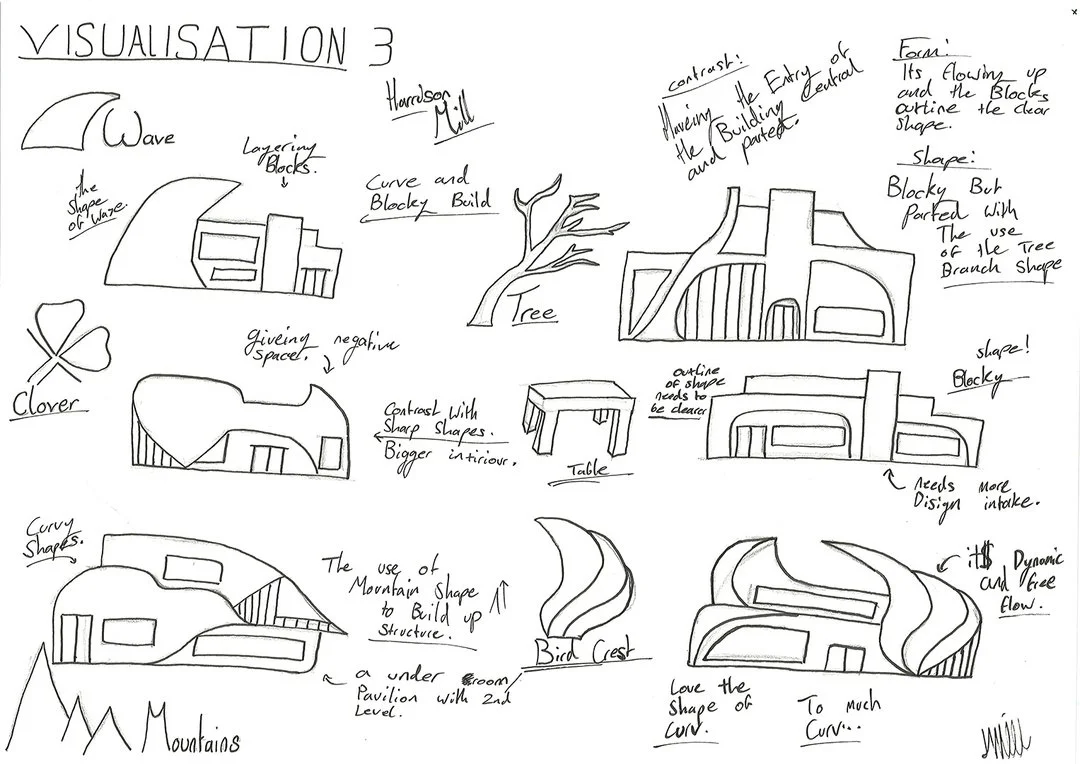 VISUALISATION 3
Wave
Harrison
Mill
Layering
Blocks.
the
Shape
of Wave.
Curve and
Blocky Build
Tree
contrast:
Haveing the Entry of
the Building Central
and parted.
Form:
Its flowing up
and the Blocks
outline the clear
shape.
Shape:
Blocky But
Parted with
The use
of the Tree
Branch Shape
Clover
giveing negative
space.
Contrast with
Sharp Shapes.
Bigger intiriour.
Table
outline
of shape
needs to
be clearer
shape!
Blocky
needs more
Disign intake.
Curvy
Shapes.
The use of
Mountain Shape
to Build up
Structure.
a under room
Pavilion with 2nd
Level.
Mountains
Bird Crest
its Dynamic
and free
flow.
Love the
Shape of
Curv.
To much
Curv...